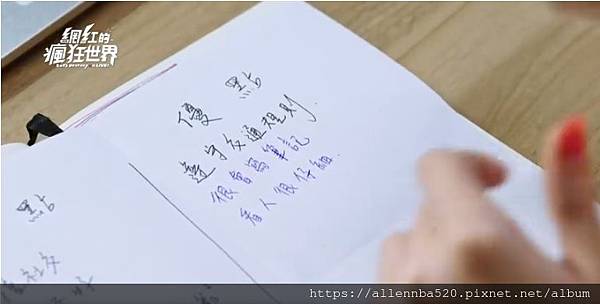 網紅的
瘋狂世界
優 點
遵守交通規則.
很會寫筆記
看人很仔細.
點
https://allennba520.pixnet.net/album